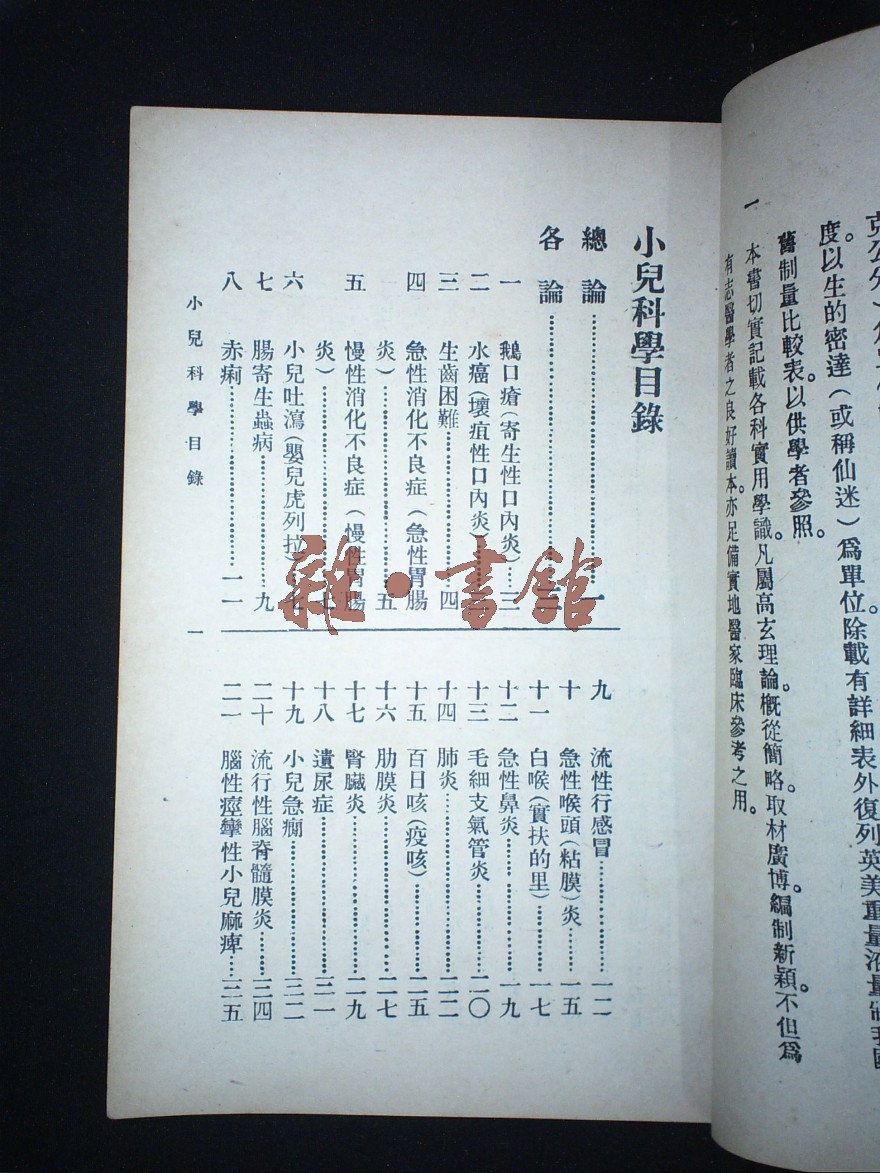 度。以生的密達（或稱仙迷）爲單位除載有詳細表外復列英美重量液量制我國
舊制量比較表。以供學者參照。
一　本書切實記載各科實用學識。凡屬高玄理論。槪從簡略。取材廣博。編制新穎。不但爲
有志醫學者之良好讀本。亦足備實地醫家臨床參考之用。
小兒科學目錄
總論……一
各論……三
一　鵝口瘡（寄生性口內炎）…三
二　水癌（壞疽性口內炎）
三　生齒困難……四
四　急性消化不良症（急性胃腸
炎）……五
五　慢性消化不良症（慢性胃腸
炎）……七
六　小兒吐瀉（嬰兒虎列拉）…七
七　腸寄生蟲病……九
八　赤痢……一一
九　流性行感冒……一二
十　急性喉頭（粘膜）炎……一五
十一　白喉（實扶的里）……一七
十二　急性鼻炎……一九
十三　毛細支氣管炎……二〇
十四　肺炎……二二
十五　百日咳（疫咳）……二五
十六　肋膜炎……二七
十七　腎臟炎……二九
十八　遺尿症……三一
十九　小兒急癎……三二
二十　流行性腦脊髓膜炎……三四
二一　腦性痙攣性小兒麻痺…三五
小兒科學目錄
一
雜·書館